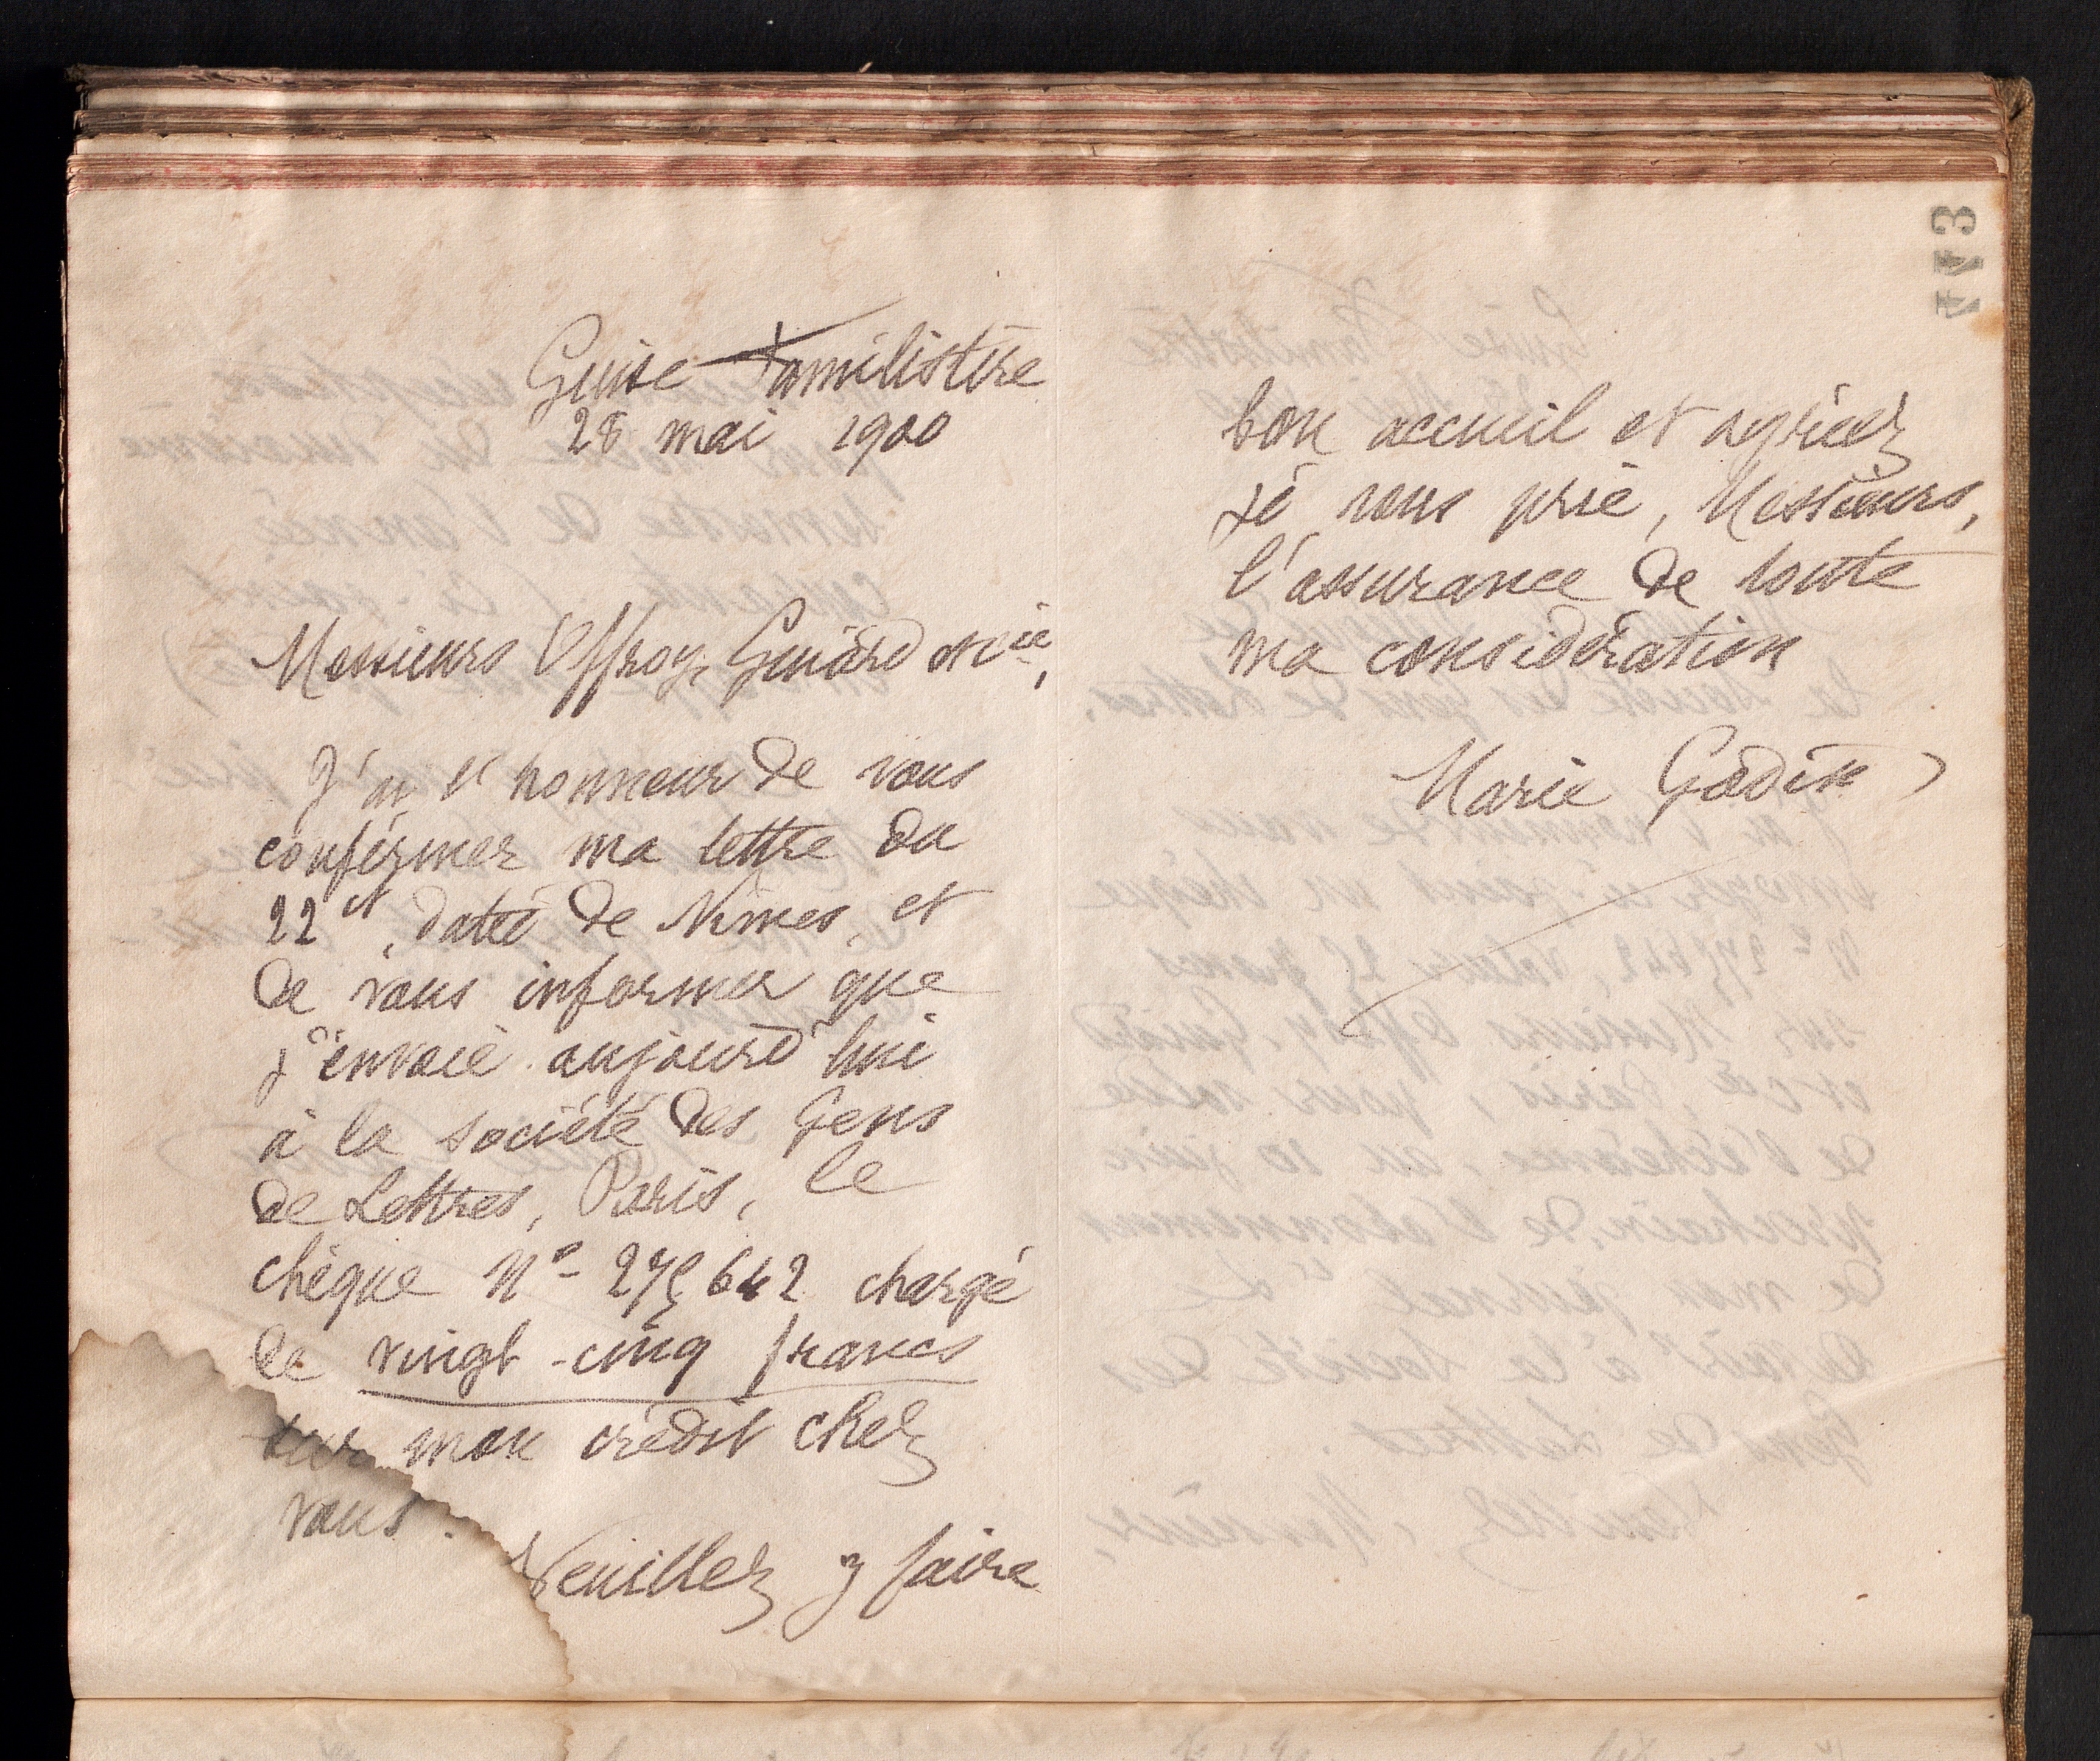 Guise Familistère
28 mai 1900
Messieurs Offroy, Guiard et Cie,
J'ai l'honneur de vous
confirmer ma lettre du
22 ct, datée de Nîmes, et
de vous informer que
j'envoie aujourd'hui
à la Société des Gens
de Lettres, Paris, le
chèque No 275642 chargé
de vingt-cinq francs
sur mon crédit chez
vous.
Veuillez y faire
bon accueil et agréez
je vous prie, Messieurs,
l'assurance de toute
ma considération
Marie Godin